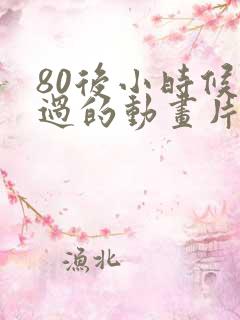 80後小時候
過的動畫片
漁北